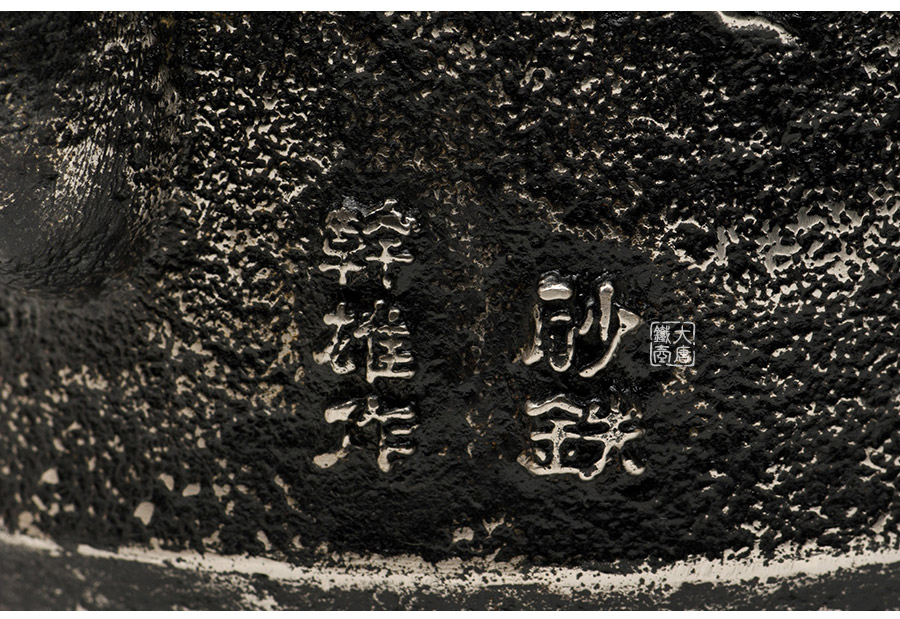 砂鉄
幹雄作
大唐
鐵壺